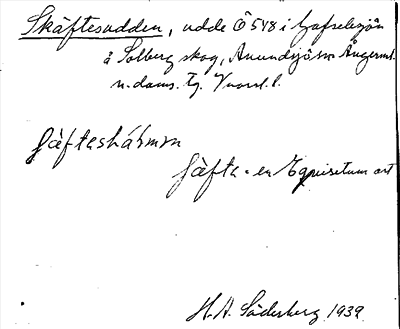 Skäftesudden, udde Ö 548 i Gafselesjön
å Solberg skog, Anundsjö sn Ångerml.
n. doms. Tg.
Jäfteshámm
Jäfta = en Equisetum art
H. A. Söderberg 1939